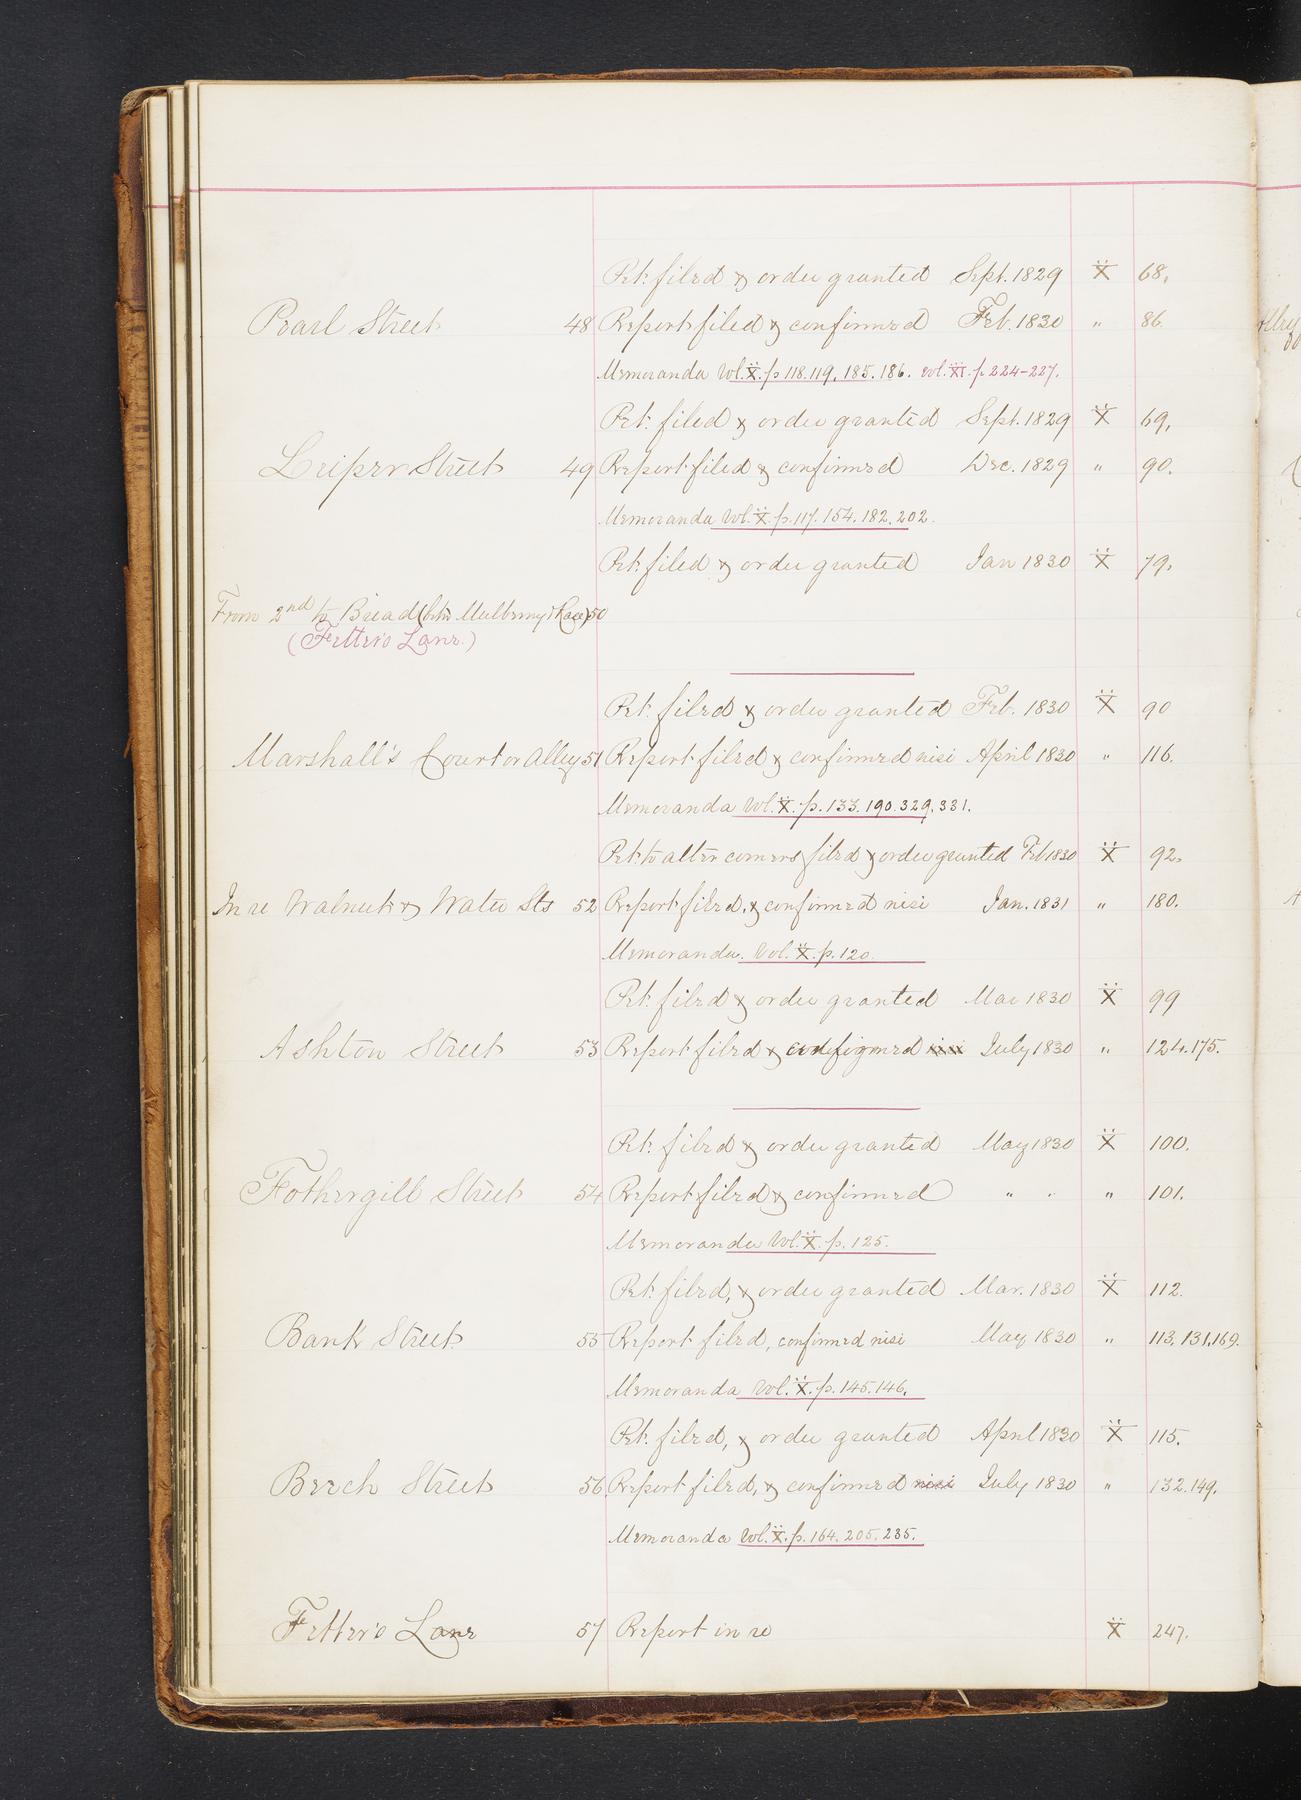 Pet. filed & order granted Sept. 1829 X 68.
Pearl Street 48 Report filed & confirmed Feb. 1830 " 86.
Memoranda Vol. X. p 118.119. 185. 186. Vol. XI. p. 224-227.
Pet. filed & order granted Sept. 1829 X 69.
Leiper Street 49 Report filed & confirmed Dec. 1829 " 90.
Memoranda Vol. X. p. 117. 154. 182. 202.
Pet. filed & order granted Jan 1830 X 79.
From 2nd to Bread (betw Mulberry & Race) 50
(Fetter's Lane.)
Pet. filed & order granted Feb. 1830 X 90
Marshall's Court or Alley 51 Report filed & confirmed nisi April 1830 " 116.
Memoranda Vol. X. p. 133. 190. 329. 331.
Pet. to alter corners filed & order granted Feb 1830 X 92.
In re Walnut & Water Sts 52 Report filed, & confirmed nisi Jan. 1831 " 180.
Memoranda. Vol. X. p. 120.
Pet. filed & order granted Mar 1830 X 99
Ashton Street 53 Report filed & confirmed nisi July 1830 " 124. 175.
Pet. filed & order granted May 1830 X 100.
Fothergill Street 54 Report filed & confirmed " " " 101.
Memoranda Vol. X. p. 125.
Pet. filed, & order granted Mar. 1830 X 112.
Bank Street 55 Report filed, confirmed nisi May 1830 " 113. 131. 169.
Memoranda Vol. X. p. 145. 146.
Pet. filed, & order granted April 1830 X 115.
Beech Street 56. Report filed, & confirmed nisi July 1830 " 132. 149.
Memoranda Vol. X. p. 164. 205. 235.
Fetter's Lane 57 Report in re X 247.